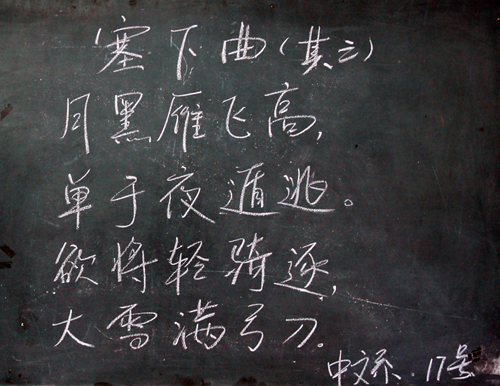 塞下曲(其三)
月黑雁飞高,
单于夜遁逃。
欲将轻骑逐,
大雪满弓刀。
中文系.17号